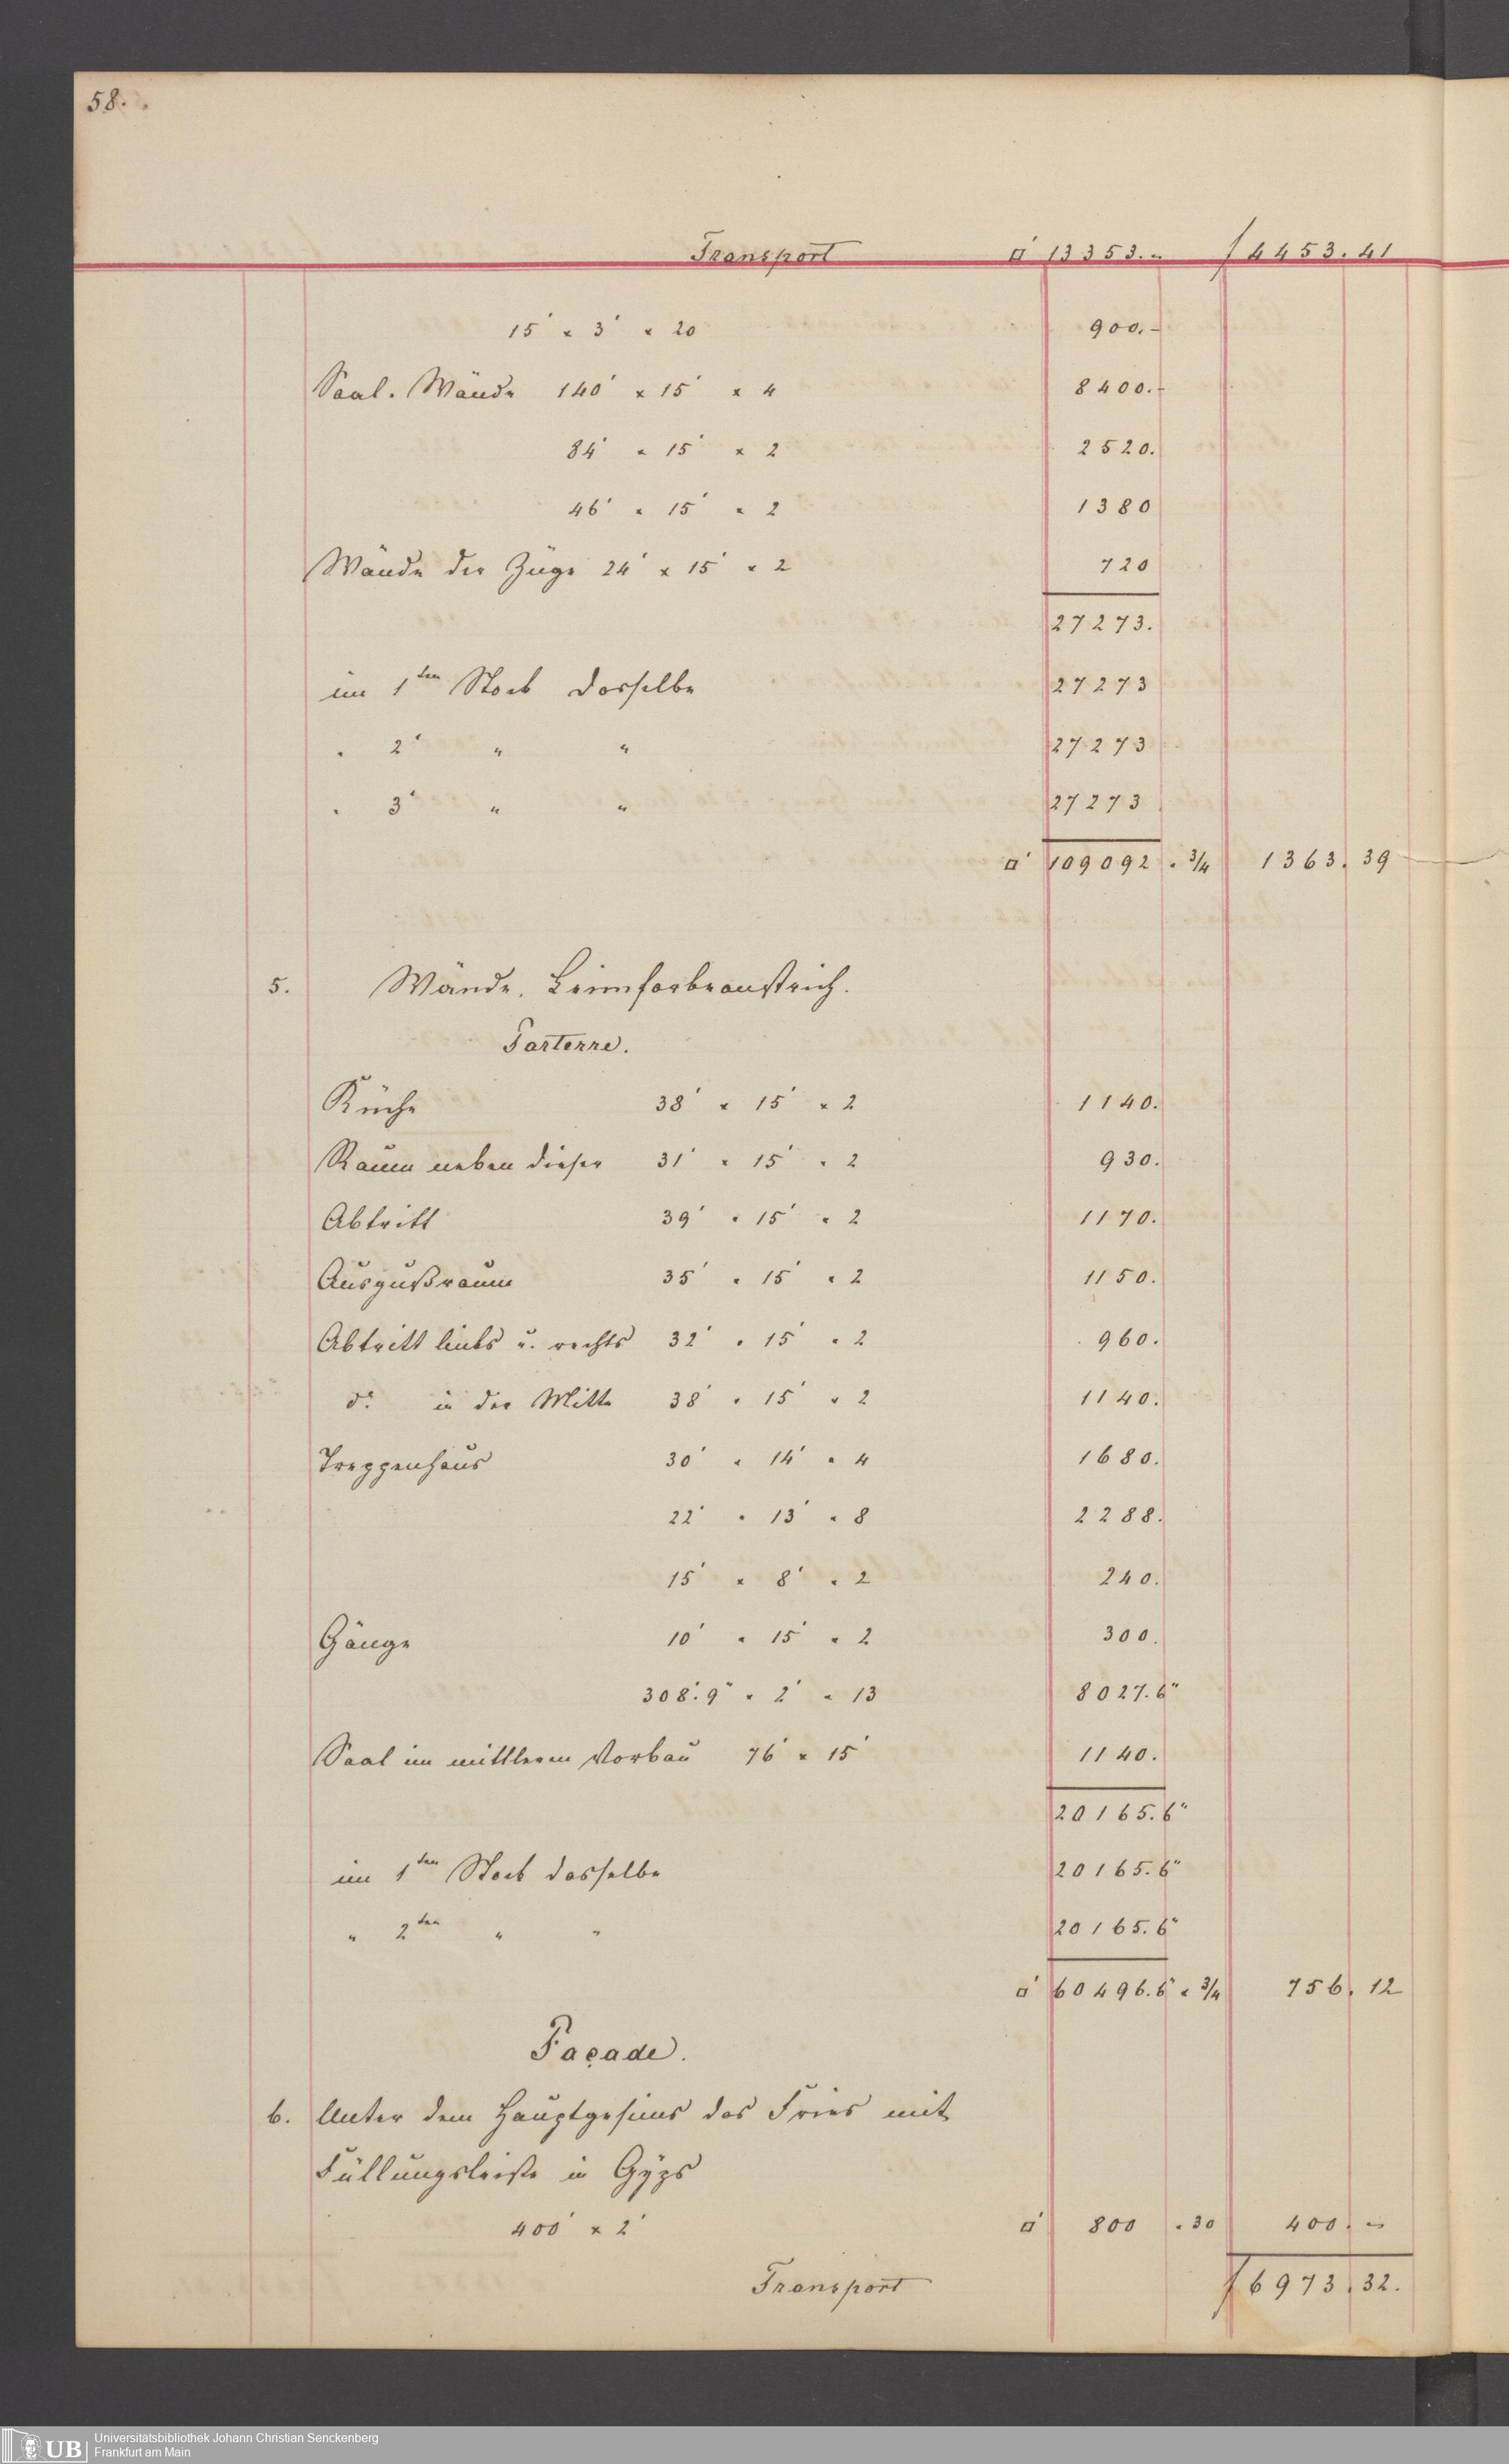 58.
Transport □' 13353.„ f 4453.41
15' × 3' × 20 900.-
Saal. Wände 140' × 15' × 4 8400.-
84' × 15' × 2 2520.
46' × 15' × 2 1380
Wände der Züge 24' × 15' × 2 720
27273.
im 1ten Stock dasselbe 27273
„ 2' „ „ 27273
„ 3' „ „ 27273
□' 109092 × 3/4 1363.39
5. Wände. Leimfarbeanstrich.
Parterre.
Küche 38' × 15' × 2 1140.
Raum neben dieser 31' × 15' × 2 930.
Abtritt 39' × 15' × 2 1170.
Ausgußraum 35' × 15' × 2 1150.
Abtritt links u. rechts 32' × 15' × 2 960.
do. in der Mitte 38' × 15' × 2 1140.
Treppenhaus 30' × 14' × 4 1680.
22' × 13' × 8 2288.
15' × 8' × 2 240.
Gänge 10' × 15' × 2 300.
308'.9" × 2' × 13 8027.6"
Saal im mittleren Vorbau 76' × 15' 1140.
20165.6"
im 1ten Stock dasselbe 20165.6"
„ 2ten „ „ 20165.6"
□' 60496.6" × 3/4 756.12
Façade.
6. Unter dem Hauptgesims das Fries mit
Füllungsleiste in Gÿps
400' × 2' □' 800 × 30 400.„
Transport f 6973.32.
UB
Universitätsbibliothek Johann Christian Senckenberg
Frankfurt am Main